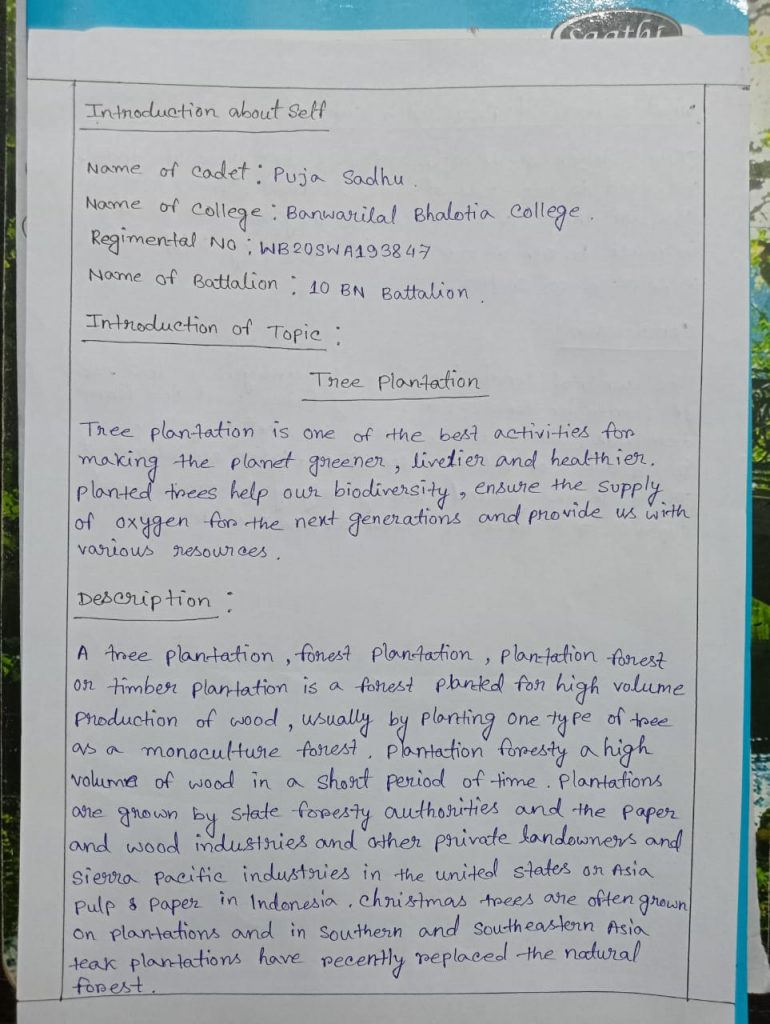 Saathi
Introduction about Self
Name of cadet : Puja Sadhu.
Name of College : Banwarilal Bhalotia College.
Regimental No : WB20SWA193847
Name of Battalion : 10 BN Battalion.
Introduction of Topic :
Tree Plantation
Tree plantation is one of the best activities for
making the planet greener, livelier and healthier.
Planted trees help our biodiversity, ensure the supply
of oxygen for the next generations and provide us with
various resources.
Description :
A tree plantation, forest plantation, plantation forest
or timber plantation is a forest planted for high volume
production of wood, usually by planting one type of tree
as a monoculture forest. Plantation foresty a high
volume of wood in a short period of time. Plantations
are grown by state foresty authorities and the paper
and wood industries and other private landowners and
Sierra Pacific industries in the united states or Asia
Pulp & Paper in Indonesia. Christmas trees are often grown
on plantations and in Southern and Southeastern Asia
teak plantations have recently replaced the natural
forest.